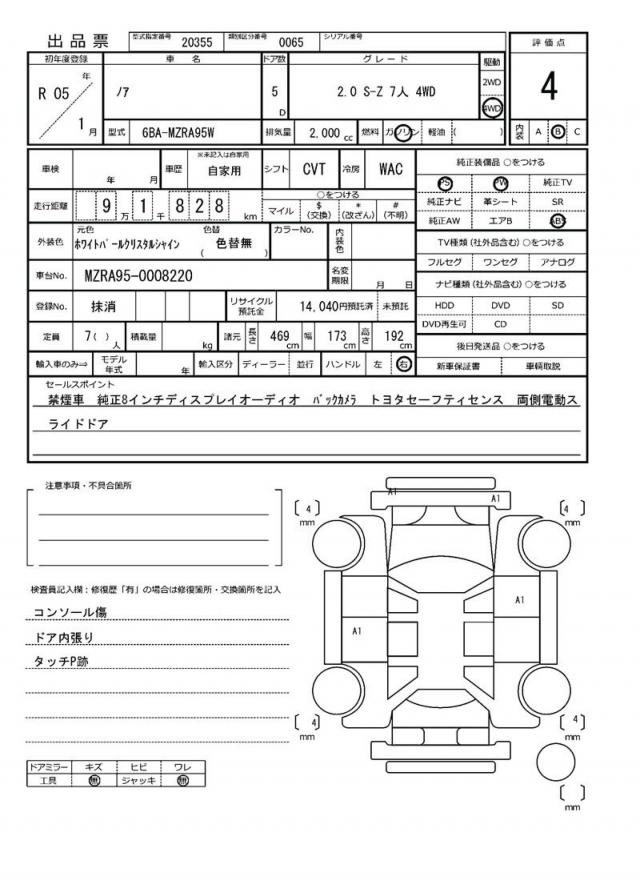 出品票 型式指定番号 20355 類別区分番号 0065 シリアル番号
評価点
4
初年度登録 車名 ドア数 グレード 駆動
R 05 年 1 月 ノア 5 D 2.0 S-Z 7人 4WD 2WD 4WD
型式 6BA-MZRA95W 排気量 2,000 cc 燃料 ガソリン 軽油 ( ) 内装 A B C
車検 年 月 車歴 ※未記入は自家用 自家用 シフト CVT 冷房 WAC
走行距離 9 万 1 千 8 2 8 km ○をつける
マイル $ (交換) * (改ざん) # (不明)
外装色 元色 ホワイトパールクリスタルシャイン 色替 ( 色替無 ) カラーNo. 内装色
車台No. MZRA95-0008220 名変期限 月 日
登録No. 抹消 リサイクル預託金 14,040円預託済 未預託
定員 7( ) 人 積載量 kg 諸元 長さ 469 cm 幅 173 cm 高さ 192 cm
輸入車のみ⇒ モデル年式 年 輸入区分 ディーラー 並行 ハンドル 左 右
純正装備品 ○をつける
PS PW 純正TV
純正ナビ 革シート SR
純正AW エアB ABS
TV種類(社外品含む) ○をつける
フルセグ ワンセグ アナログ
ナビ種類(社外品含む) ○をつける
HDD DVD SD
DVD再生可 CD
後日発送品 ○をつける
新車保証書 車輌取説
セールスポイント
禁煙車 純正8インチディスプレイオーディオ バックカメラ トヨタセーフティセンス 両側電動ス
ライドドア
注意事項・不具合箇所
検査員記入欄：修復歴「有」の場合は修復箇所・交換箇所を記入
コンソール傷
ドア内張り
タッチP跡
ドアミラー キズ ヒビ ワレ
工具 無 ジャッキ 無
A1
A1
[ 4 ] mm
[ 4 ] mm
A1
A1
[ 4 ] mm
[ 4 ] mm
[ ] mm